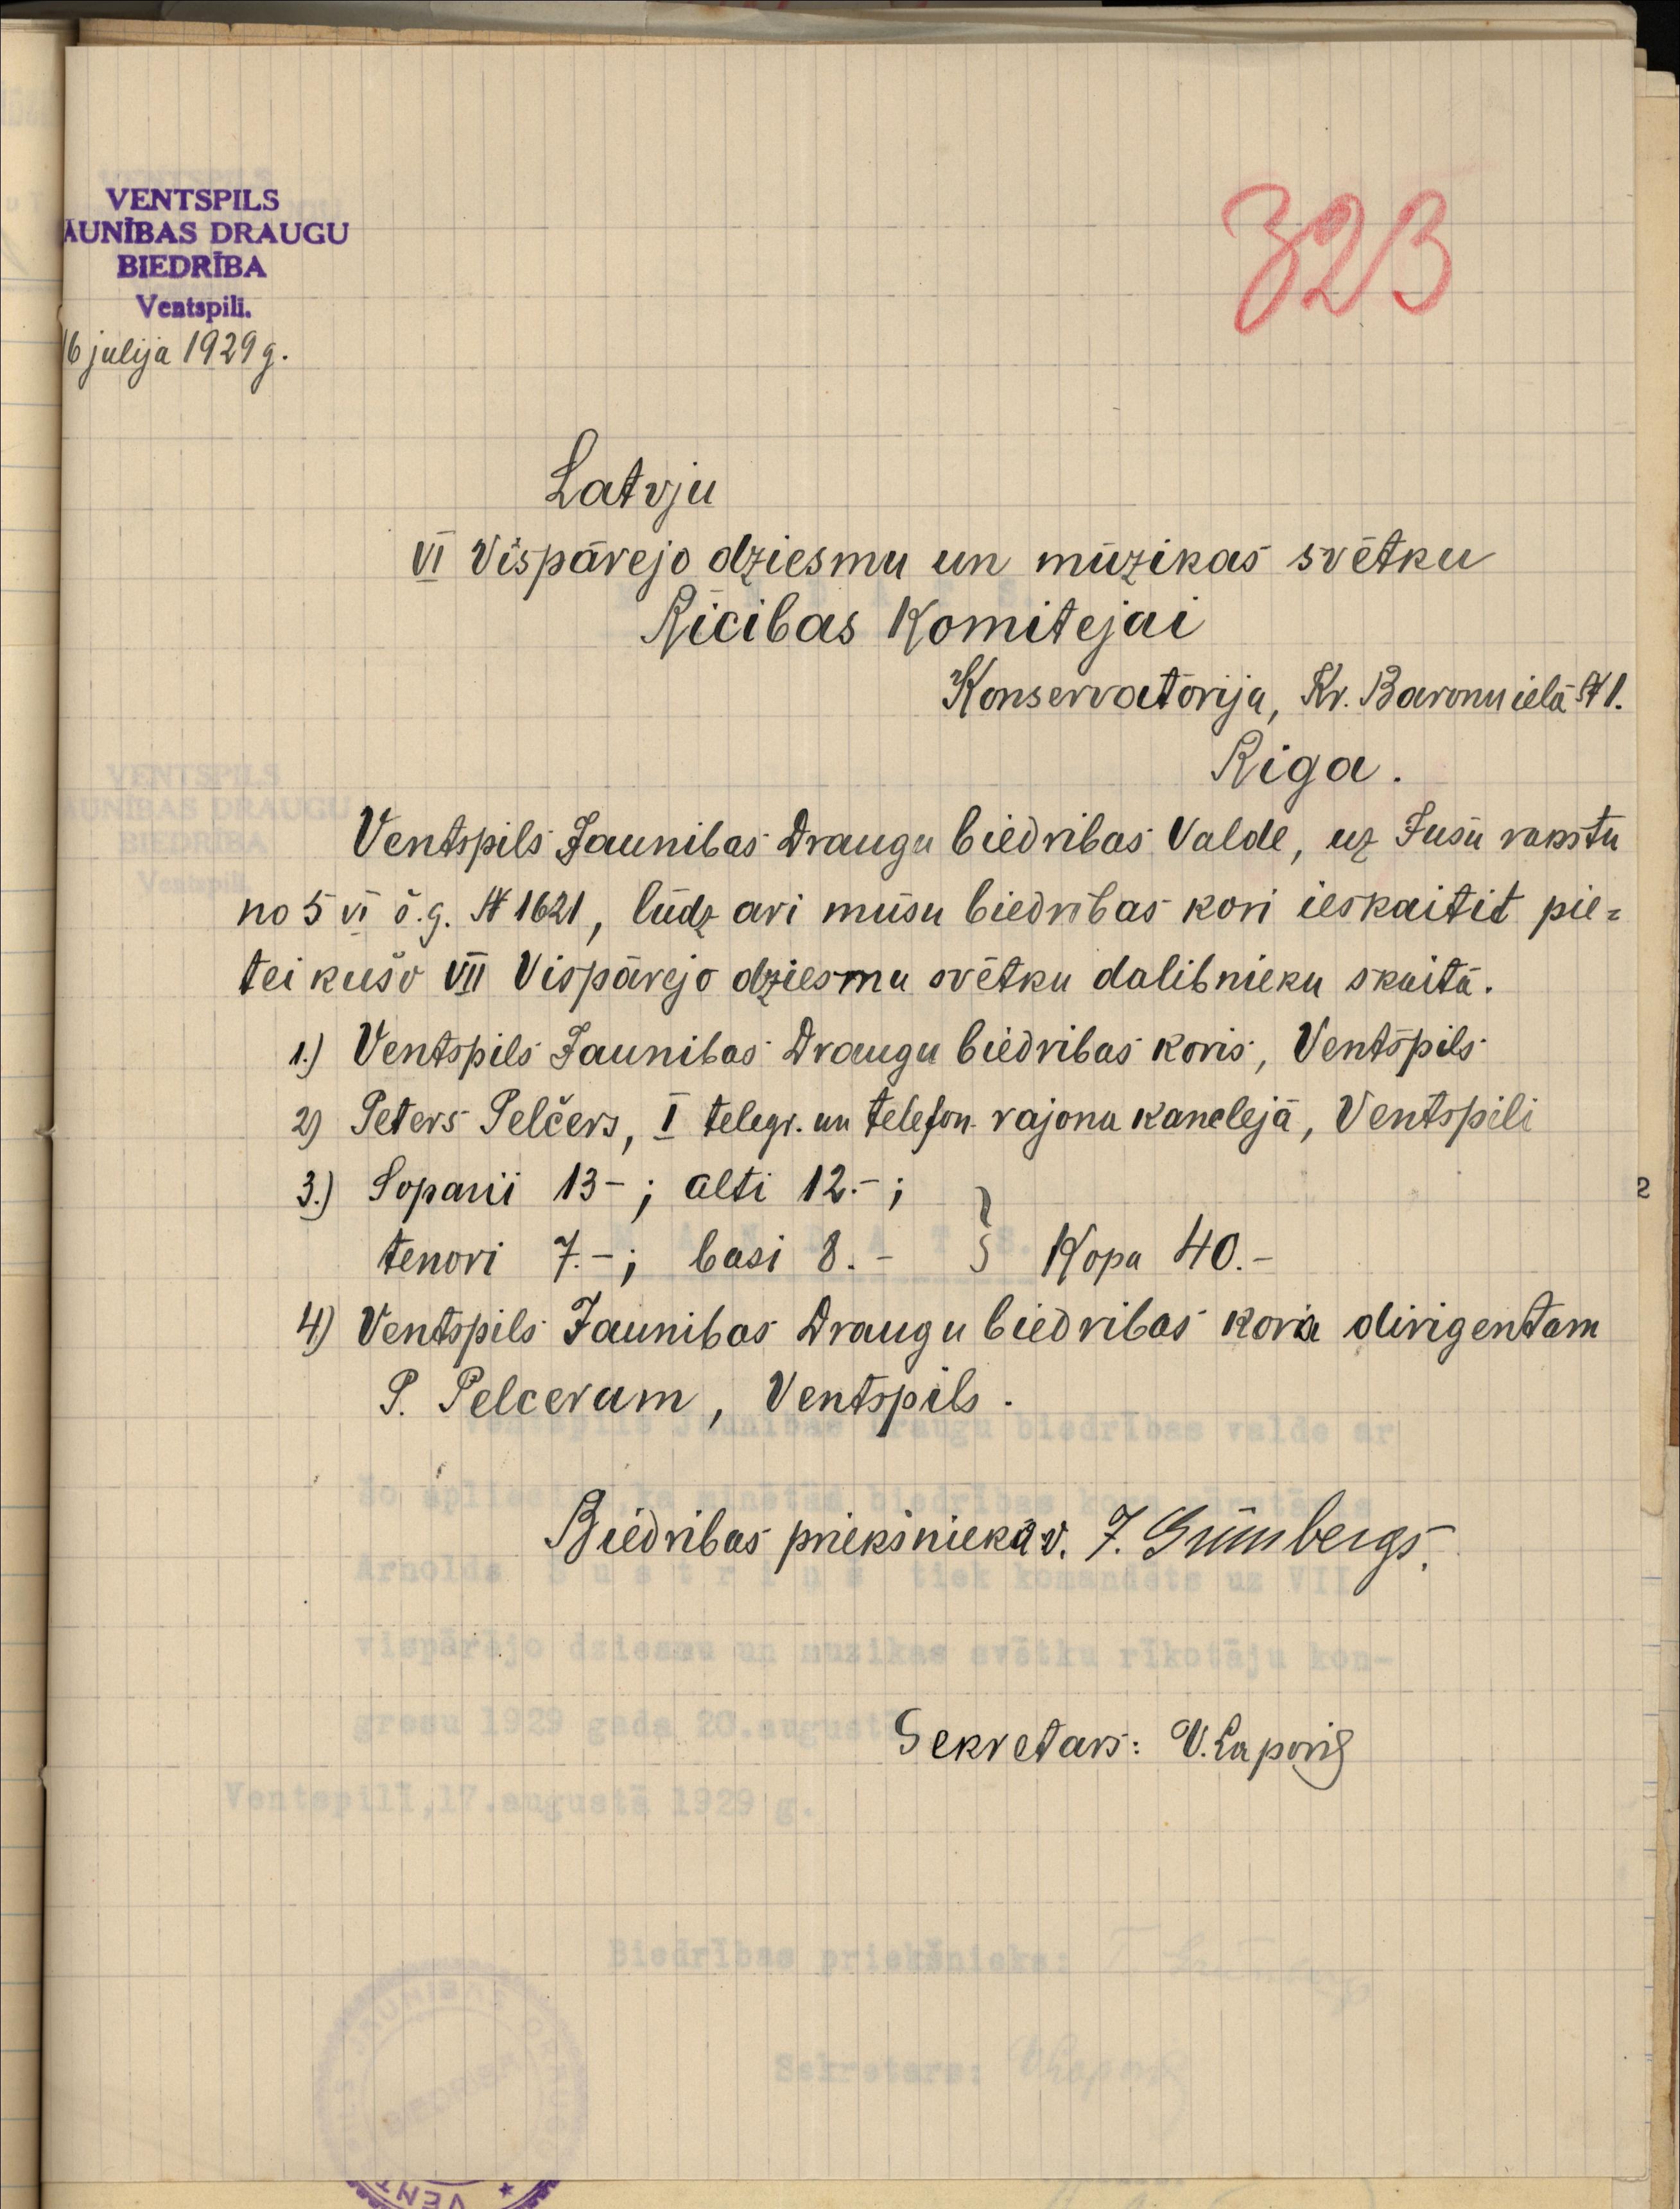 VENTSPILS
AUNĪBAS DRAUGU
BIEDRĪBA
Ventspilī.
16 julija 1929 g.
323
Latvju
VI Vispārejo dziesmu un mūzikas svētku
Ricibas Komitejai
Konservatorija, Kr. Baronu ielā № 1.
Riga.
Ventspils Jaunibas Draugu biedribas Valde, uz Jusū rakstu
no 5 VI š.g. № 1621, lūdz ari mūsu biedribas kori ieskaitit pie=
teikušo VII Vispārejo dziesmu svētku dalibnieku skaitā.
1.) Ventspils Jaunibas Draugu biedribas koris, Ventspils
2) Peters Pelčers, I telegr. un telefon. rajona kanclejā, Ventspili
3.) Soparii 13-; alti 12.-;
tenori 7.-; basi 8.- } Kopa 40.-
4) Ventspils Jaunibas Draugu biedribas kora dirigentam
P. Pelceram, Ventspils.
Biedribas priekšnieka v. J. Grünbergs.
Sekretars: V. Laporiņš
2
Ventspils Jaunības draugu biedrības valde ar
šo apliecina, ka minētās biedrības
Arnolds tiek komandēts uz VII
vispārējo dziesmu un muzikas svētku rīkotāju kon-
gresu 1929 gada 20. augustā
Ventspilī, 17. augustā 1929 g.
Biedrības priekšnieks:
Sekretars:
VENT